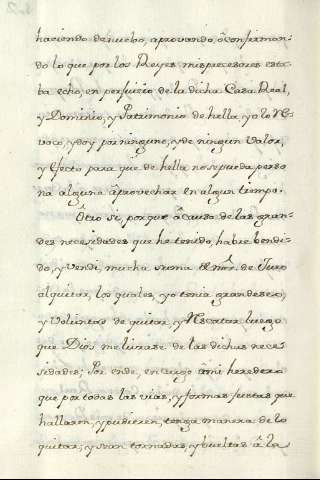 haciendo de nuebo, aprovando, ô confirman-
do lo que por los Reyes mis precesores esta-
ba echo, en perjuicio de la dicha Casa Real,
y Dominio, y Patrimonio de hella, yo lo Re-
voco, y doy por ninguno, y de ningun Valor,
y efecto para que de hella nosepueda perso
na alguna âprovechar en algun tiempo.
Otro si, porque â causa de las gran-
des necesidades que he tenido, habie bendi-
do, y Vendi, mucha suma de mrs. de Juro
alquitar, los quales, yo tenia gran deseo,
y Voluntad de quitar, y Rescatar luego
que Dios me librase de las dichas nece-
sidades; Por ende, encargo âmi heredero
que por todas las vias, y formas justas que
hallaren, y pudieren, tenga manera de lo
quitar, y sean tornadas, y bueltas â la